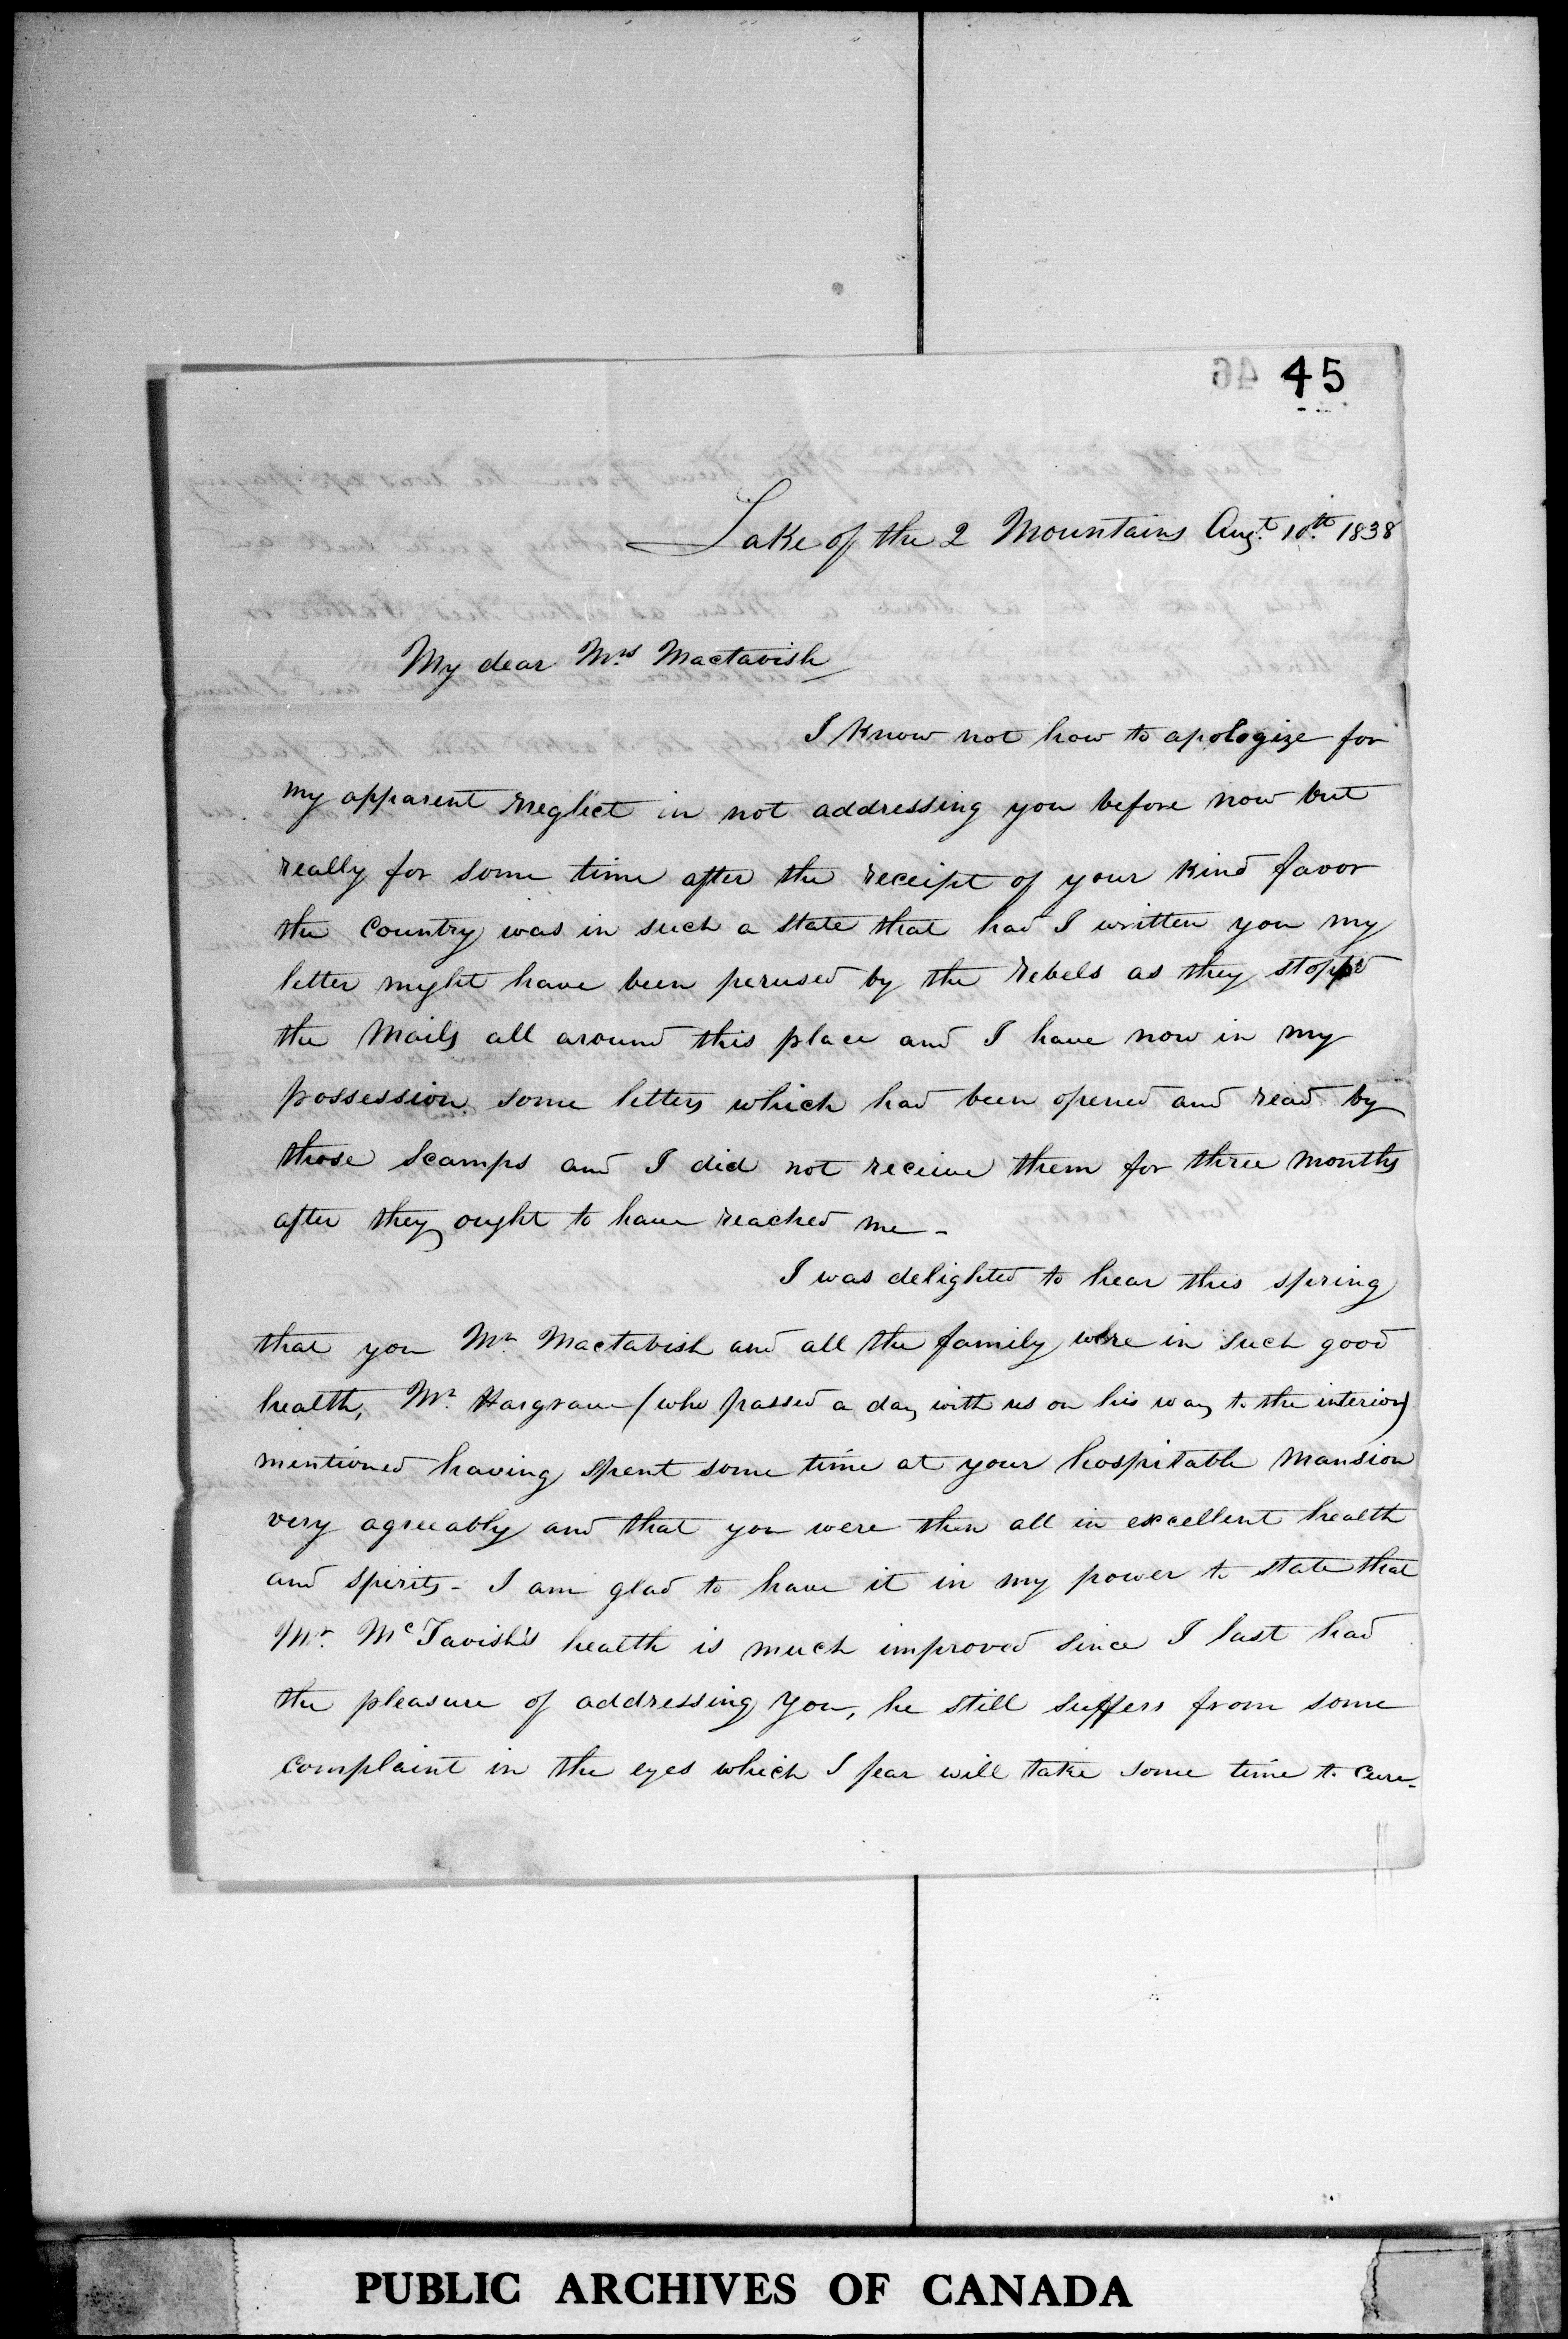 45
Lake of the 2 Mountains Augt. 10th. 1838
My dear Mrs Mactavish
I Know not how to apologize for
my apparent neglect in not addressing you before now but
really for some time after the receipt of your Kind favor
the Country was in such a state that had I written you my
letter might have been perused by the rebels as they stopp'd
the Mails all around this place and I have now in my
possession some letters which had been opened and read by
those Scamps and I did not receive them for three Months
after they ought to have reached me -
I was delighted to hear this spring
that you Mr. Mactavish and all the family were in such good
health, Mr. Hargrave (who passed a day with us on his way to the interior)
mentioned having spent some time at your hospitable Mansion
very agreeably and that you were then all in excellent health
and spirits - I am glad to have it in my power to state that
Mr. McTavish's health is much improved since I last had
the pleasure of addressing You, he still suffers from some
complaint in the eyes which I fear will take some time to cure -
PUBLIC ARCHIVES OF CANADA